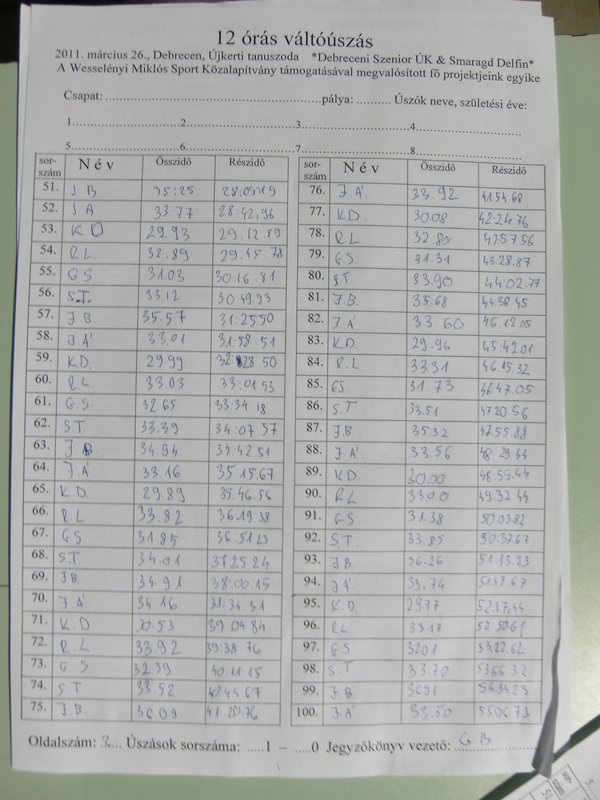 12 órás váltóúszás
2011. március 26., Debrecen, Újkerti tanuszoda *Debreceni Szenior ÚK & Smaragd Delfin*
A Wesselényi Miklós Sport Közalapítvány támogatásával megvalósított fő projektjeink egyike
Csapat: ........ pálya: ........ Úszók neve, születési éve:
1........2........3........4........
5........6........7........8........
sorszám Név Összidő Részidő
51. J B 35:25
52. J A 33.77 28:42,96
53. K D 29.93 29.12.89
54. R.L. 32.89 29:45.78
55. G S 31.03 30:16.81
56. S.T. 33.12 30:49.93
57. J B 35.57 31:25.50
58. J Á 33.01 31:58.51
59. K.D. 29.99 32:28.50
60. R.L 33.03 33:01.53
61. G.S 32.65 33:34.18
62. S.T. 33.39 34:07.57
63. J B 34.94 34:42.51
64. J Á 33.16 35:15.67
65. K D. 29.89 35:46.56
66. R.L 33.82 36.19.38
67. G.S 31.85 36.51.23
68. S.T. 34.01 37 25 24
69. J B. 34.91 38:00.15
70. J Á 34.16 38:34 31
71. K.D 30.53 39 04 84
72. R.L 33.92 39:38 76
73. G S. 32 39 40.11.15
74. S T 33.52 40.44 67
75. J B. 36 09 41.20.76
sorszám Név Összidő Részidő
76. J.Á. 33.92 41.54 68
77. K.D. 30.08 42:24.76
78. R.L 32.80 42.57 56
79. G.S 31.31 43:28.87
80. S T 33.90 44 02.77
81. J.B 35.68 44:38 45
82. J Á 33 60 45.12 05
83. K.D 29.96 45:42 01
84. R.L 33 31 46 15.32
85. G S 31.73 46 47.05
86. S.T 33.51 47 20.56
87. J.B 35.32 47.55 88
88. J.Á. 33.56 48:29.44
89. K D 30.00 48:59.44
90. R.L 33 00 49:32 44
91. G S 31.38 50 03.82
92. S T 33.85 50:37 67
93. J B 36.26 51 13.93
94. J Á 33.74 51:47.67
95. K D 29.77 52:17,44
96. R.L. 33 17 52 50 61
97. G.S 32 01 53.22.62
98. S.T 33.70 53 56 32
99. J B 36 91 54 33 23
100. J.Á 33.50 55 06.73
Oldalszám: 3... Úszások sorszáma: .....1 – ....0 Jegyzőkönyv vezető: G B